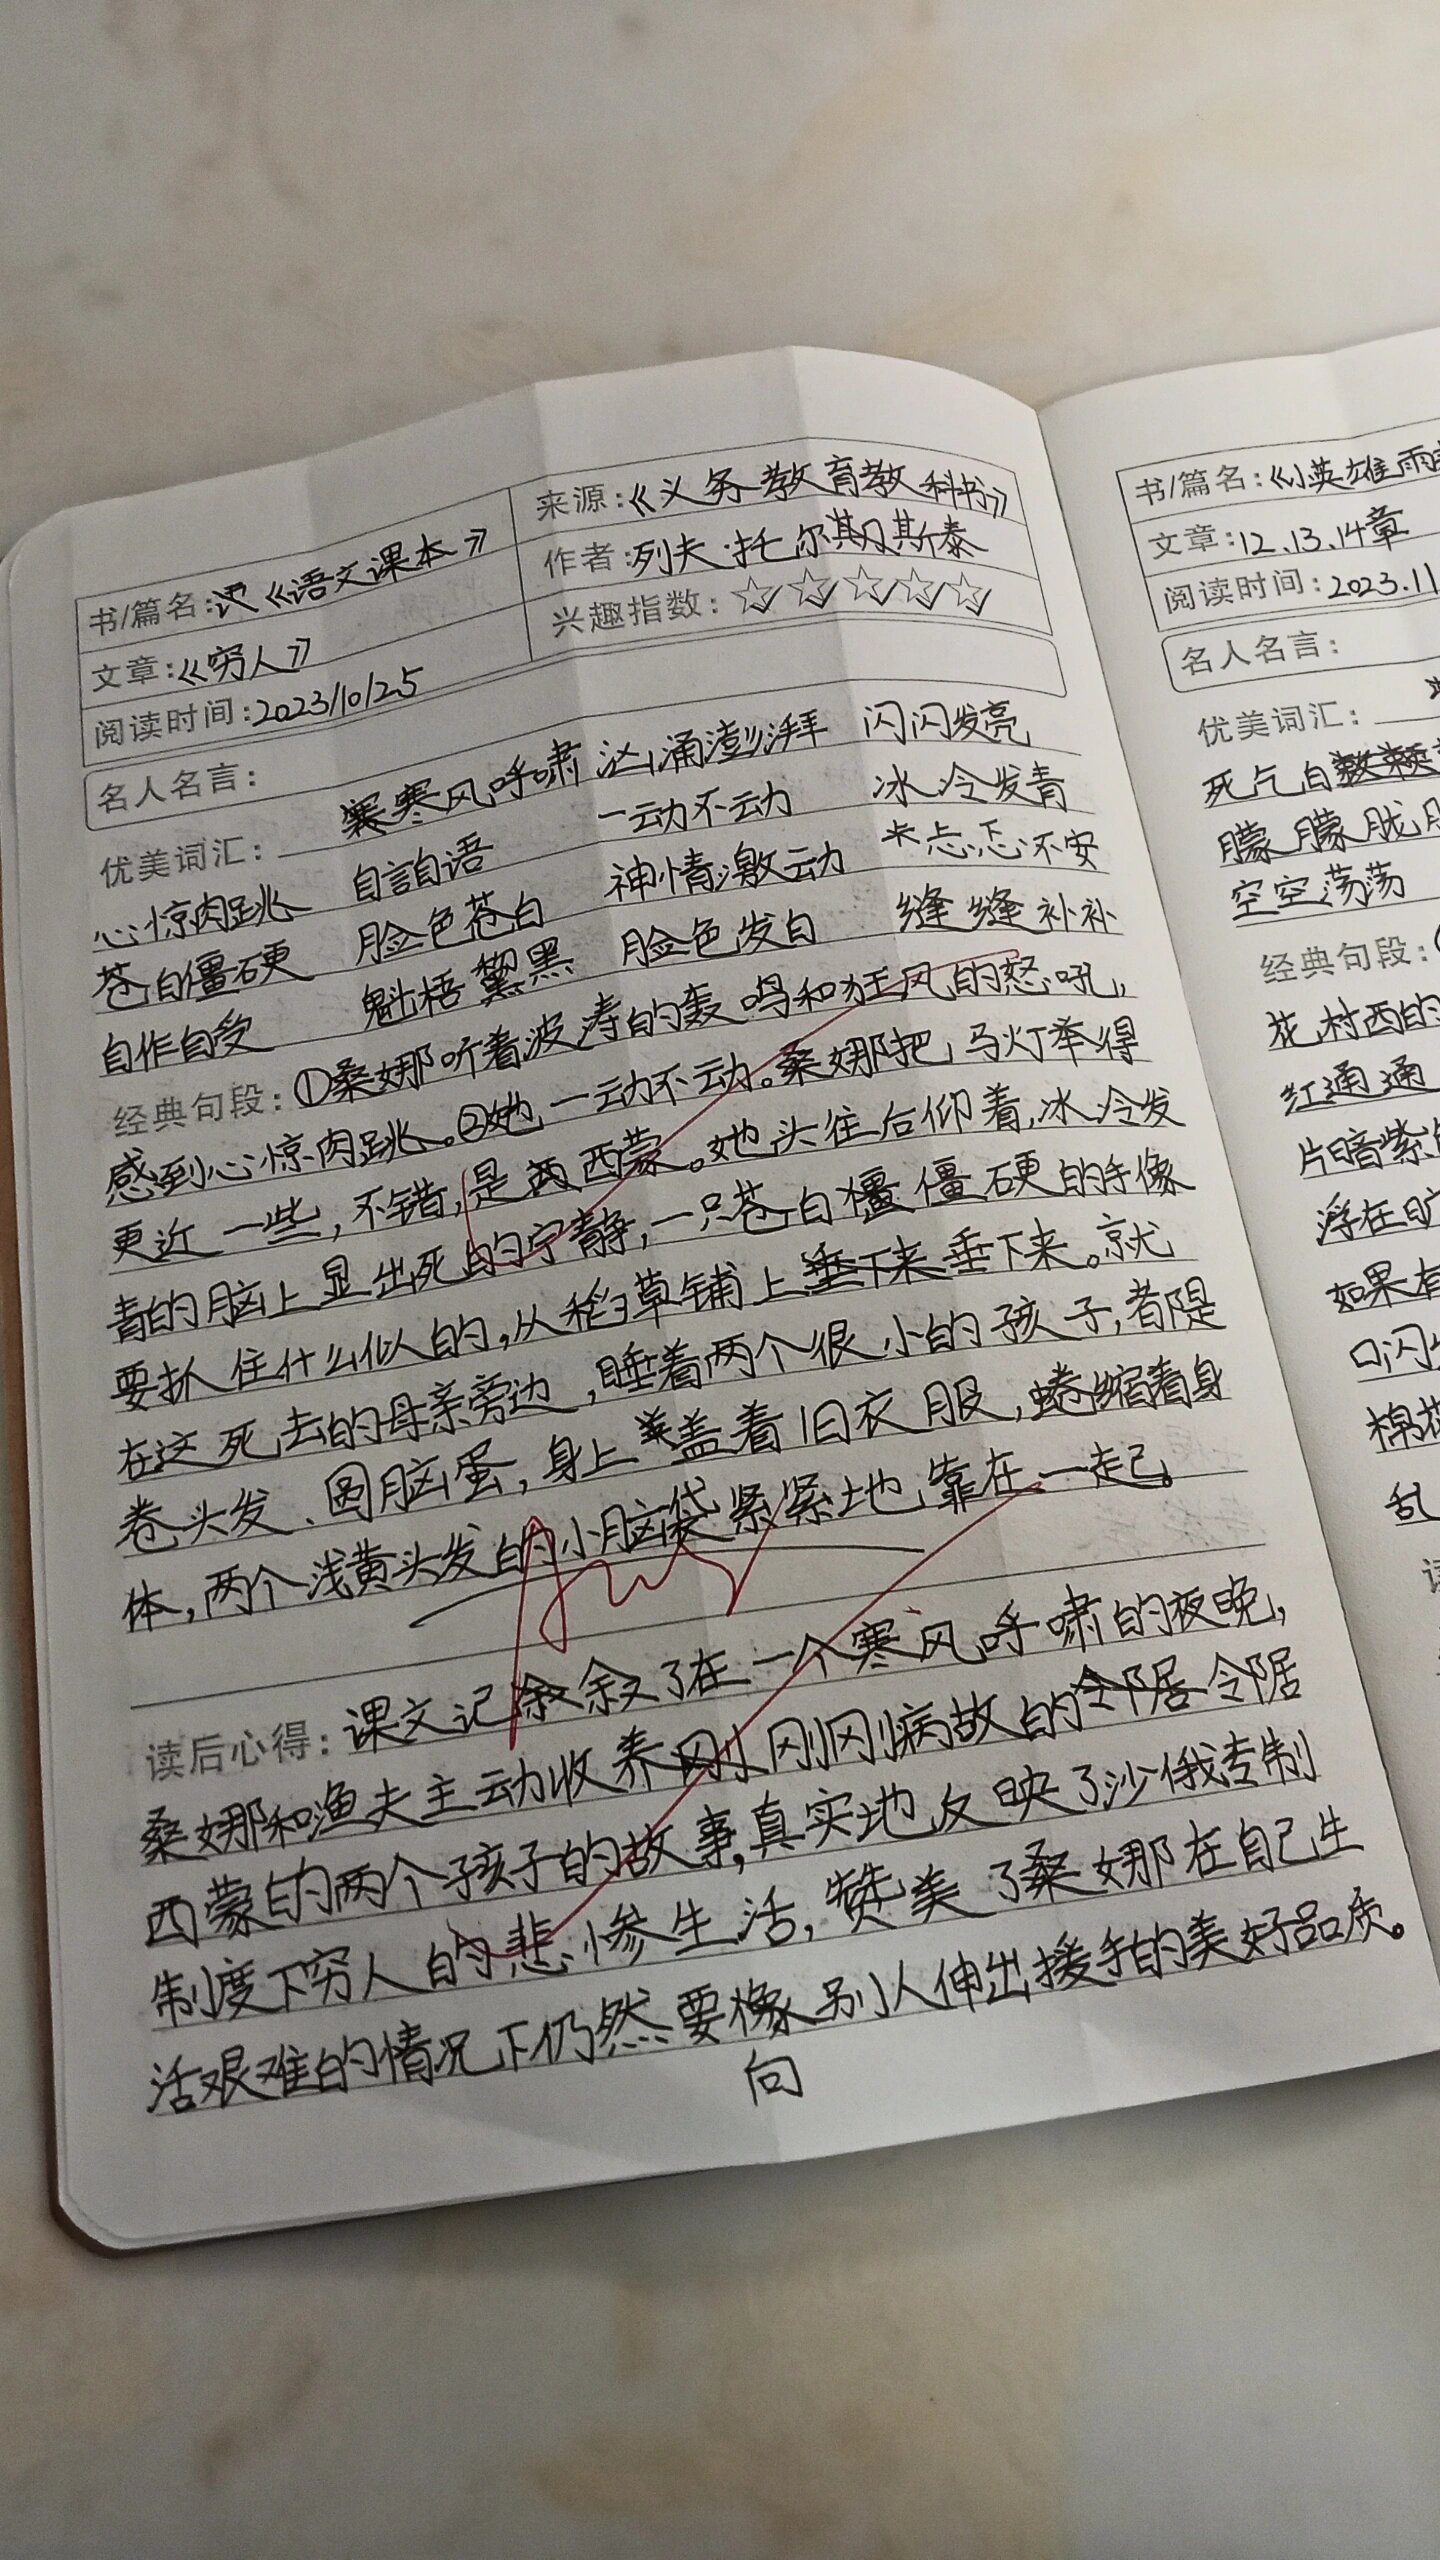 书/篇名:《语文课本》
来源:《义务教育教科书》
文章:《穷人》
作者:列夫·托尔斯泰
阅读时间:2023/10/25
兴趣指数:☆☆☆☆☆
名人名言:
优美词汇: 寒风呼啸 汹涌澎湃 闪闪发亮
心惊肉跳 自言自语 一动不动 冰冷发青
苍白僵硬 脸色苍白 神情激动 忐忑不安
自作自受 魁梧黧黑 脸色发白 缝缝补补
经典句段:①桑娜听着波涛的轰鸣和狂风的怒吼,
感到心惊肉跳。②她一动不动。桑娜把马灯举得
更近一些,不错,是西蒙。她头往后仰着,冰冷发
青的脸上显出死的宁静,一只苍白僵硬的手像
要抓住什么似的,从稻草铺上垂下来。就
在这死去的母亲旁边,睡着两个很小的孩子,都是
卷头发、圆脸蛋,身上盖着旧衣服,蜷缩着身
体,两个浅黄头发的小脑袋紧紧地靠在一起。
读后心得:课文记叙了在一个寒风呼啸的夜晚,
桑娜和渔夫主动收养刚刚病故的令阝居
西蒙的两个孩子的故事,真实地反映了沙俄专制
制度下穷人的悲惨生活,赞美了桑娜在自己生
活艰难的情况下仍然要像别人伸出援手的美好品质。
向
书/篇名:《小英雄雨
文章:12、13、14章
阅读时间:2023.11
名人名言:
优美词汇:
死气白
朦朦胧胧
空空荡荡
经典句段:
花,村西的
红通通
片暗紫
浮在旷
如果有
口,闪
棉花
乱